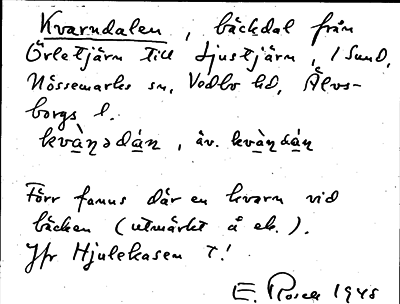 Kvarndalen, bäckdal från
Örletjärn till Ljustjärn, i Sund,
Nössemarks sn, Vedbo hd, Älvs-
borgs l.
kvàṇədán, äv. kvàṇdán
Förr fanns där en kvarn vid
bäcken (utmärkt å ek.).
Jfr Hjulekasen T!
E. Rosell 1948